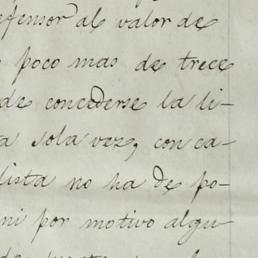 efensor al valor de
poco mas de trece
de concederse la li-
a sola vez, con ca-
lista no ha de po-
ni por motivo algu-